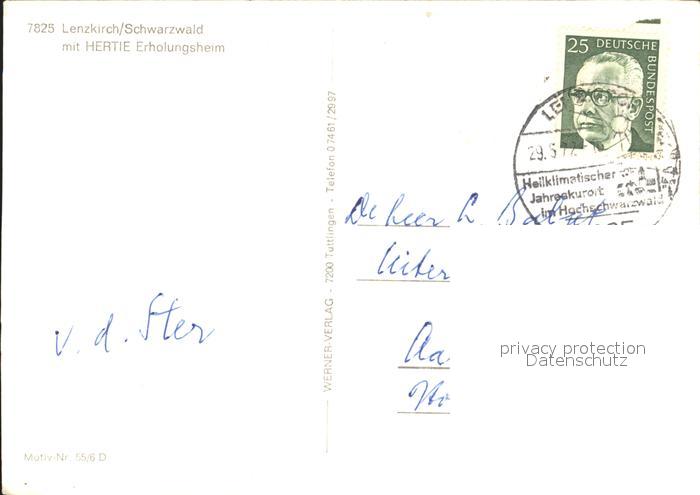 7825 Lenzkirch/Schwarzwald
mit HERTIE Erholungsheim
25 DEUTSCHE
BUNDESPOST
29.5.
Heilklimatischer
Jahreskurort
im Hochschwarzwald
WERNER-VERLAG - 7200 Tuttlingen - Telefon 07461/2997
De heer
v. d. Ster
Aa
privacy protection
Datenschutz
Motiv-Nr. 55/6 D